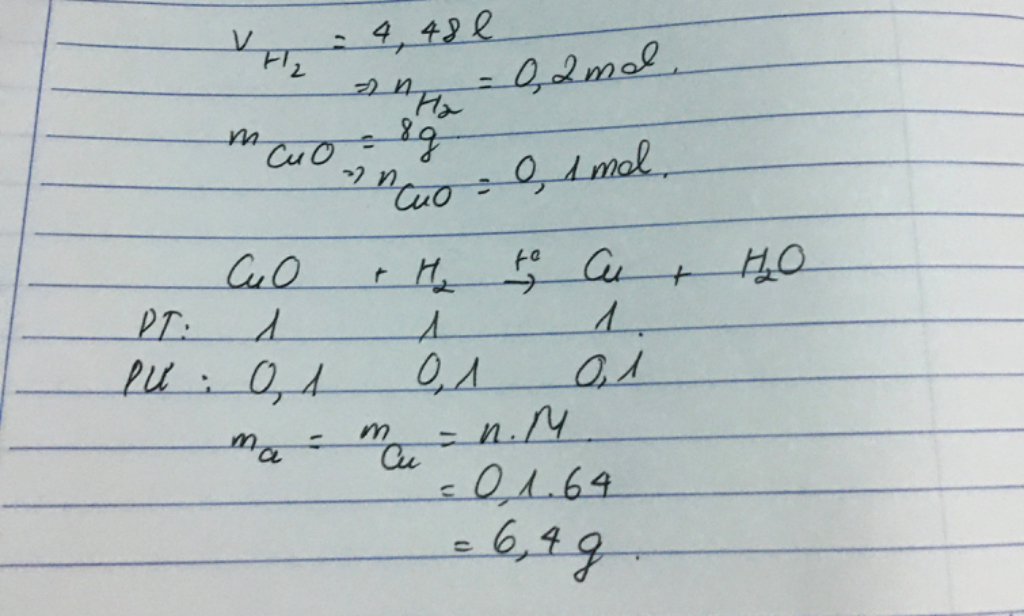 V H₂ = 4,48 l
=> n H₂ = 0,2 mol.
m CuO = 8g.
=> n CuO = 0,1 mol.
CuO + H₂ t° → Cu + H₂O
PT: 1 1 1.
PƯ: 0,1 0,1 0,1
m a = m Cu = n.M.
= 0,1.64
= 6,4 g.